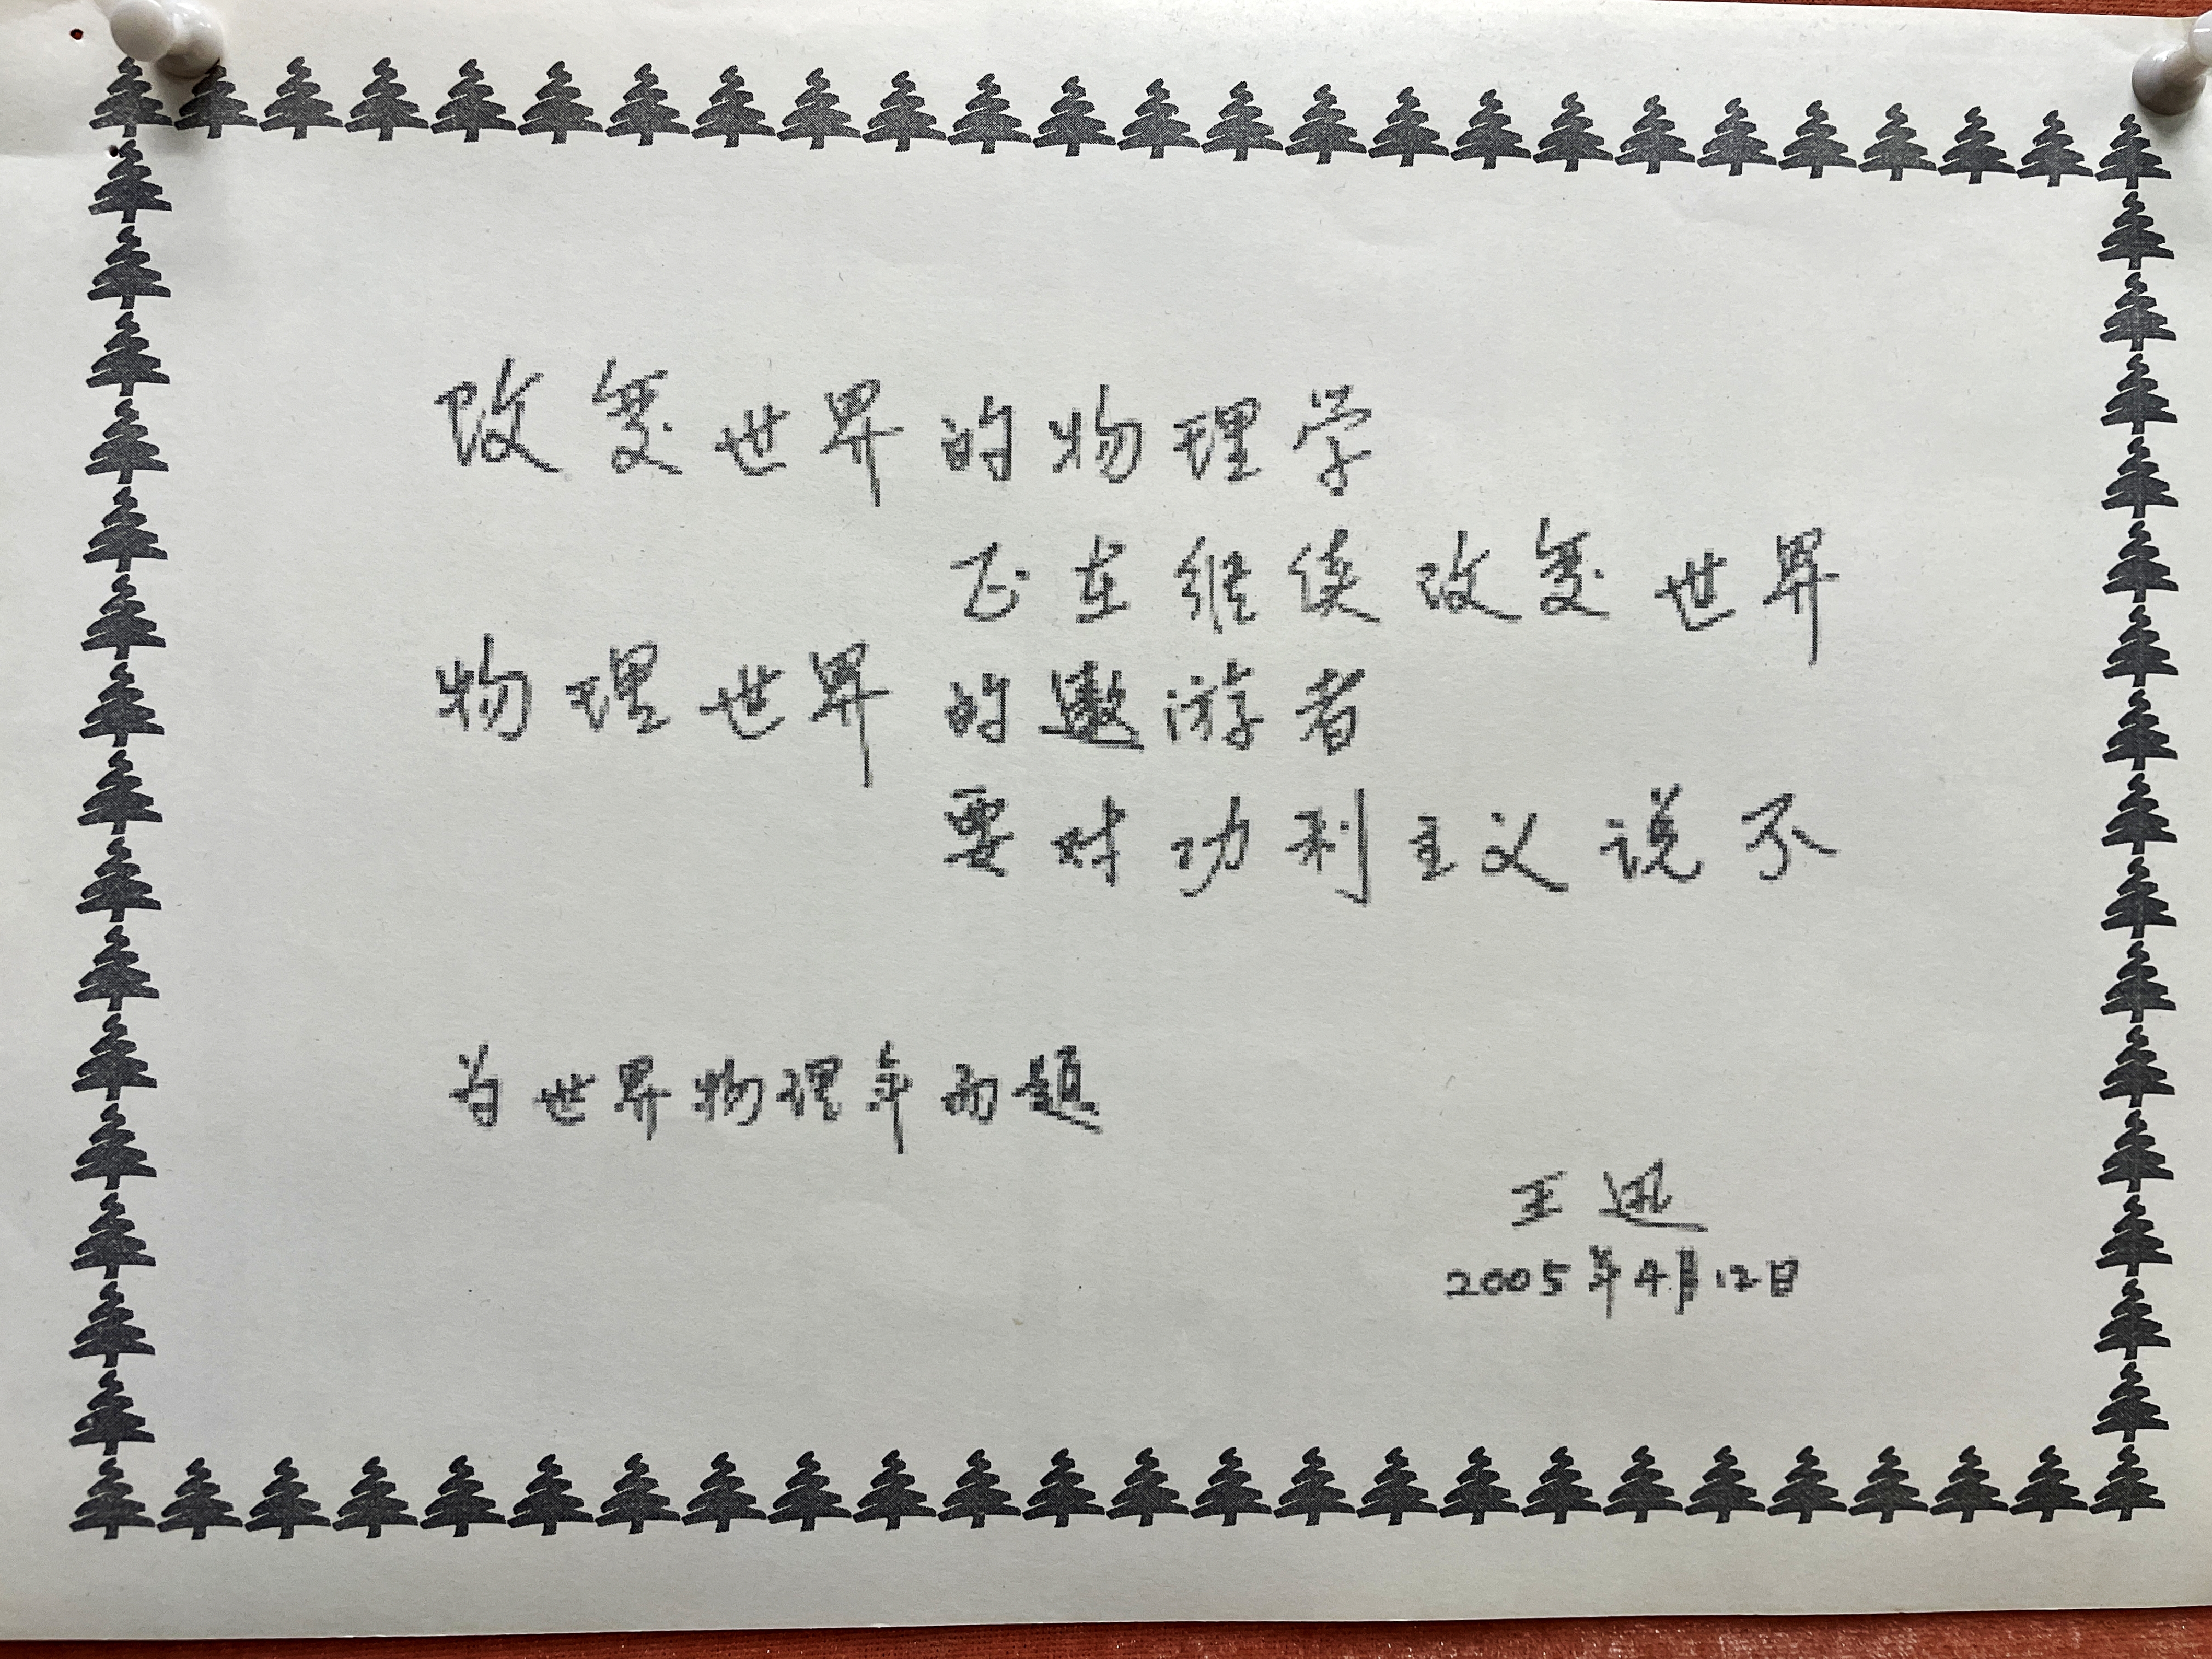 改变世界的物理学
正在继续改变世界
物理世界的遨游者
要对功利主义说不
为世界物理年而题
王迅
2005年4月12日